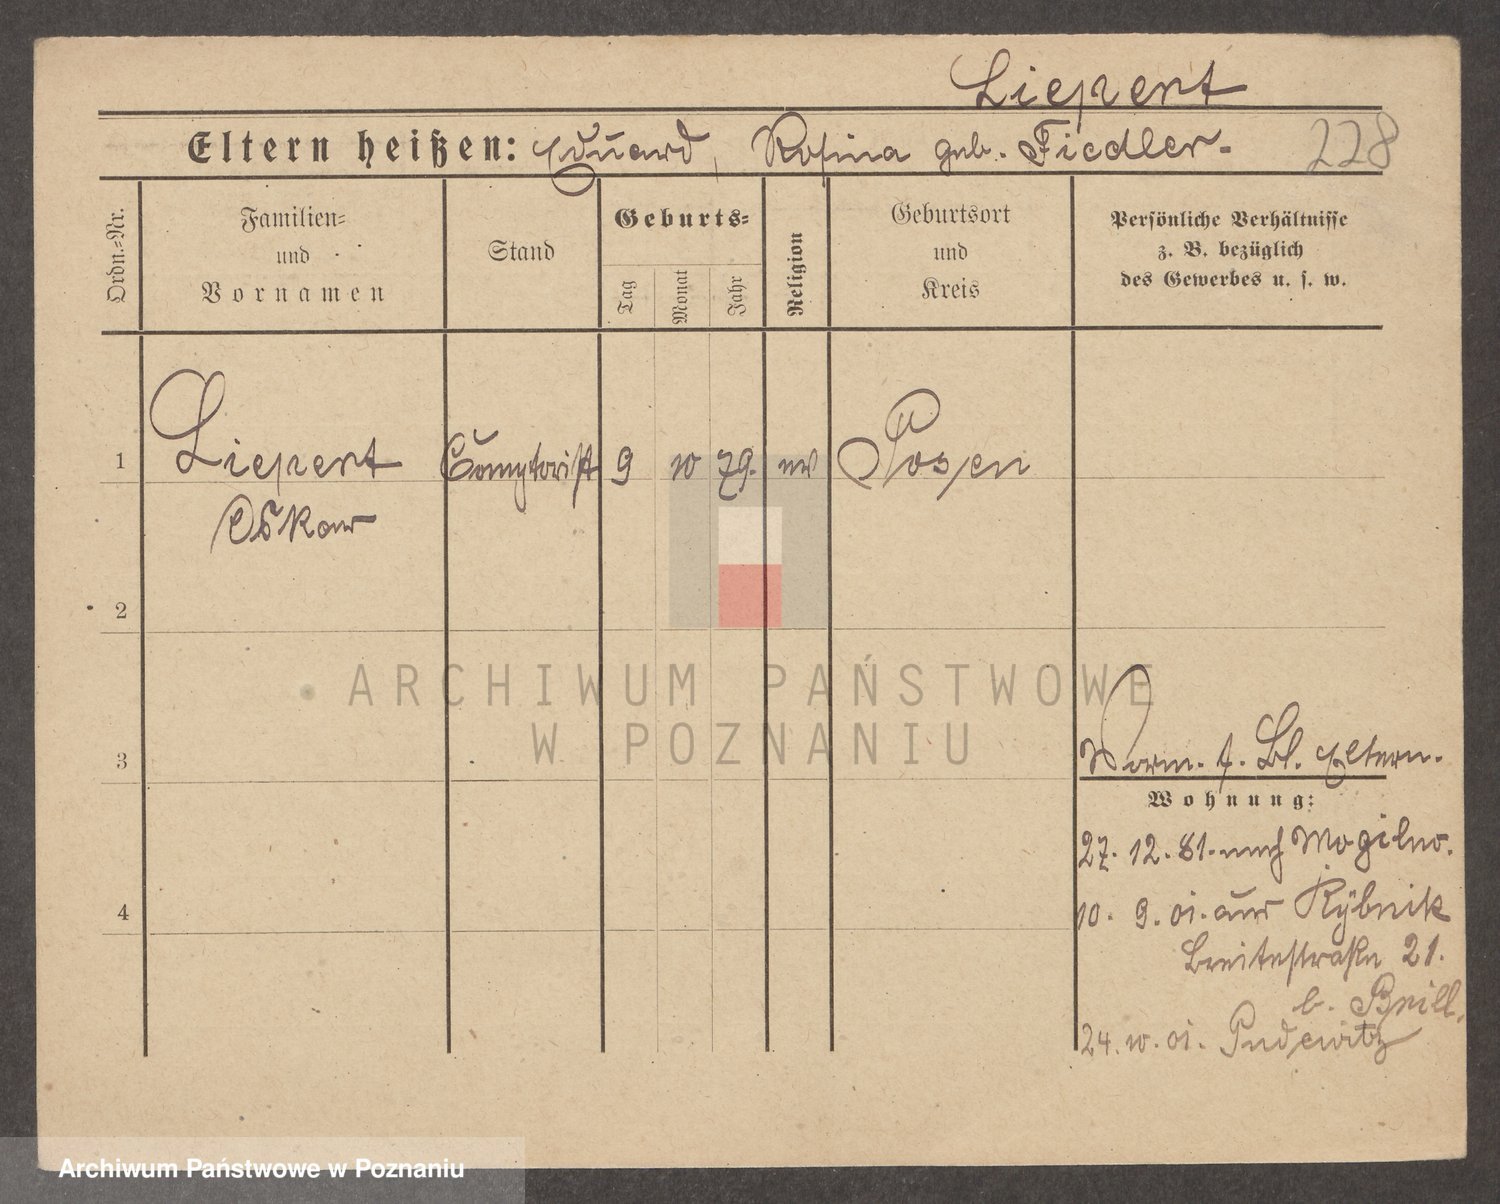 Liepert
Eltern heißen: Eduard, Rosina geb. Fiedler.
228
Ordn.-Nr.
Familien-
und
Vornamen
Stand
Geburts-
Tag
Monat
Jahr
Religion
Geburtsort
und
Kreis
Persönliche Verhältnisse
z. B. bezüglich
des Gewerbes u. s. w.
1 Liepert Comptorist 9 10 79. ev Posen
Oskar
2
ARCHIWUM PAŃSTWOWE
W POZNANIU
3
Vorm. f. Bl. Eltern.
Wohnung:
27. 12. 81. nach Mogilno.
4
10. 9. 01. aus Rybnik
Breitestraße 21.
b. Brill.
24. 10. 01. Pudewitz
Archiwum Państwowe w Poznaniu